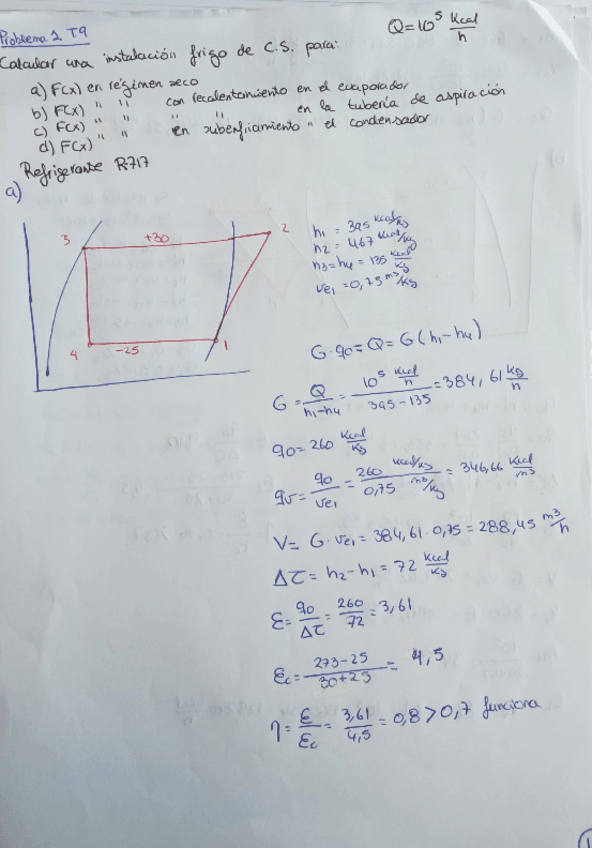 Problema 1 T9
Q = 10⁵ Kcal/h
Calcular una instalación frigo de C.S. para:
a) F(x) en régimen seco
b) F(x) " " con recalentamiento en el evaporador
c) F(x) " " " " en la tubería de aspiración
d) F(x) " " en subenfriamiento " el condensador
Refrigerante R717
a)
3 +30 2
4 -25 1
h1 = 395 Kcal/Kg
h2 = 467 Kcal/Kg
h3 = h4 = 135 Kcal/Kg
ve1 = 0,75 m3/Kg
G · q0 = Q = G (h1 - h4)
G = Q/(h1-h4) = (10⁵ Kcal/h)/(395-135) = 384,61 Kg/h
q0 = 260 Kcal/Kg
qv = q0/ve1 = (260 Kcal/Kg)/(0,75 m3/Kg) = 346,66 Kcal/m3
V = G · ve1 = 384,61 · 0,75 = 288,45 m3/h
Δτ = h2 - h1 = 72 Kcal/Kg
ε = q0/Δτ = 260/72 = 3,61
εc = (273-25)/(30+25) = 4,5
η = ε/εc = 3,61/4,5 = 0,8 > 0,7 funciona
1